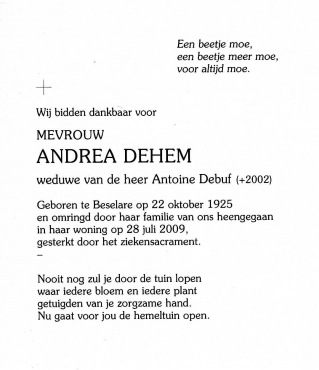 Een beetje moe,
een beetje meer moe,
voor altijd moe.
Wij bidden dankbaar voor
MEVROUW
ANDREA DEHEM
weduwe van de heer Antoine Debuf (+2002)
Geboren te Beselare op 22 oktober 1925
en omringd door haar familie van ons heengegaan
in haar woning op 28 juli 2009,
gesterkt door het ziekensacrament.
–
Nooit nog zul je door de tuin lopen
waar iedere bloem en iedere plant
getuigden van je zorgzame hand.
Nu gaat voor jou de hemeltuin open.